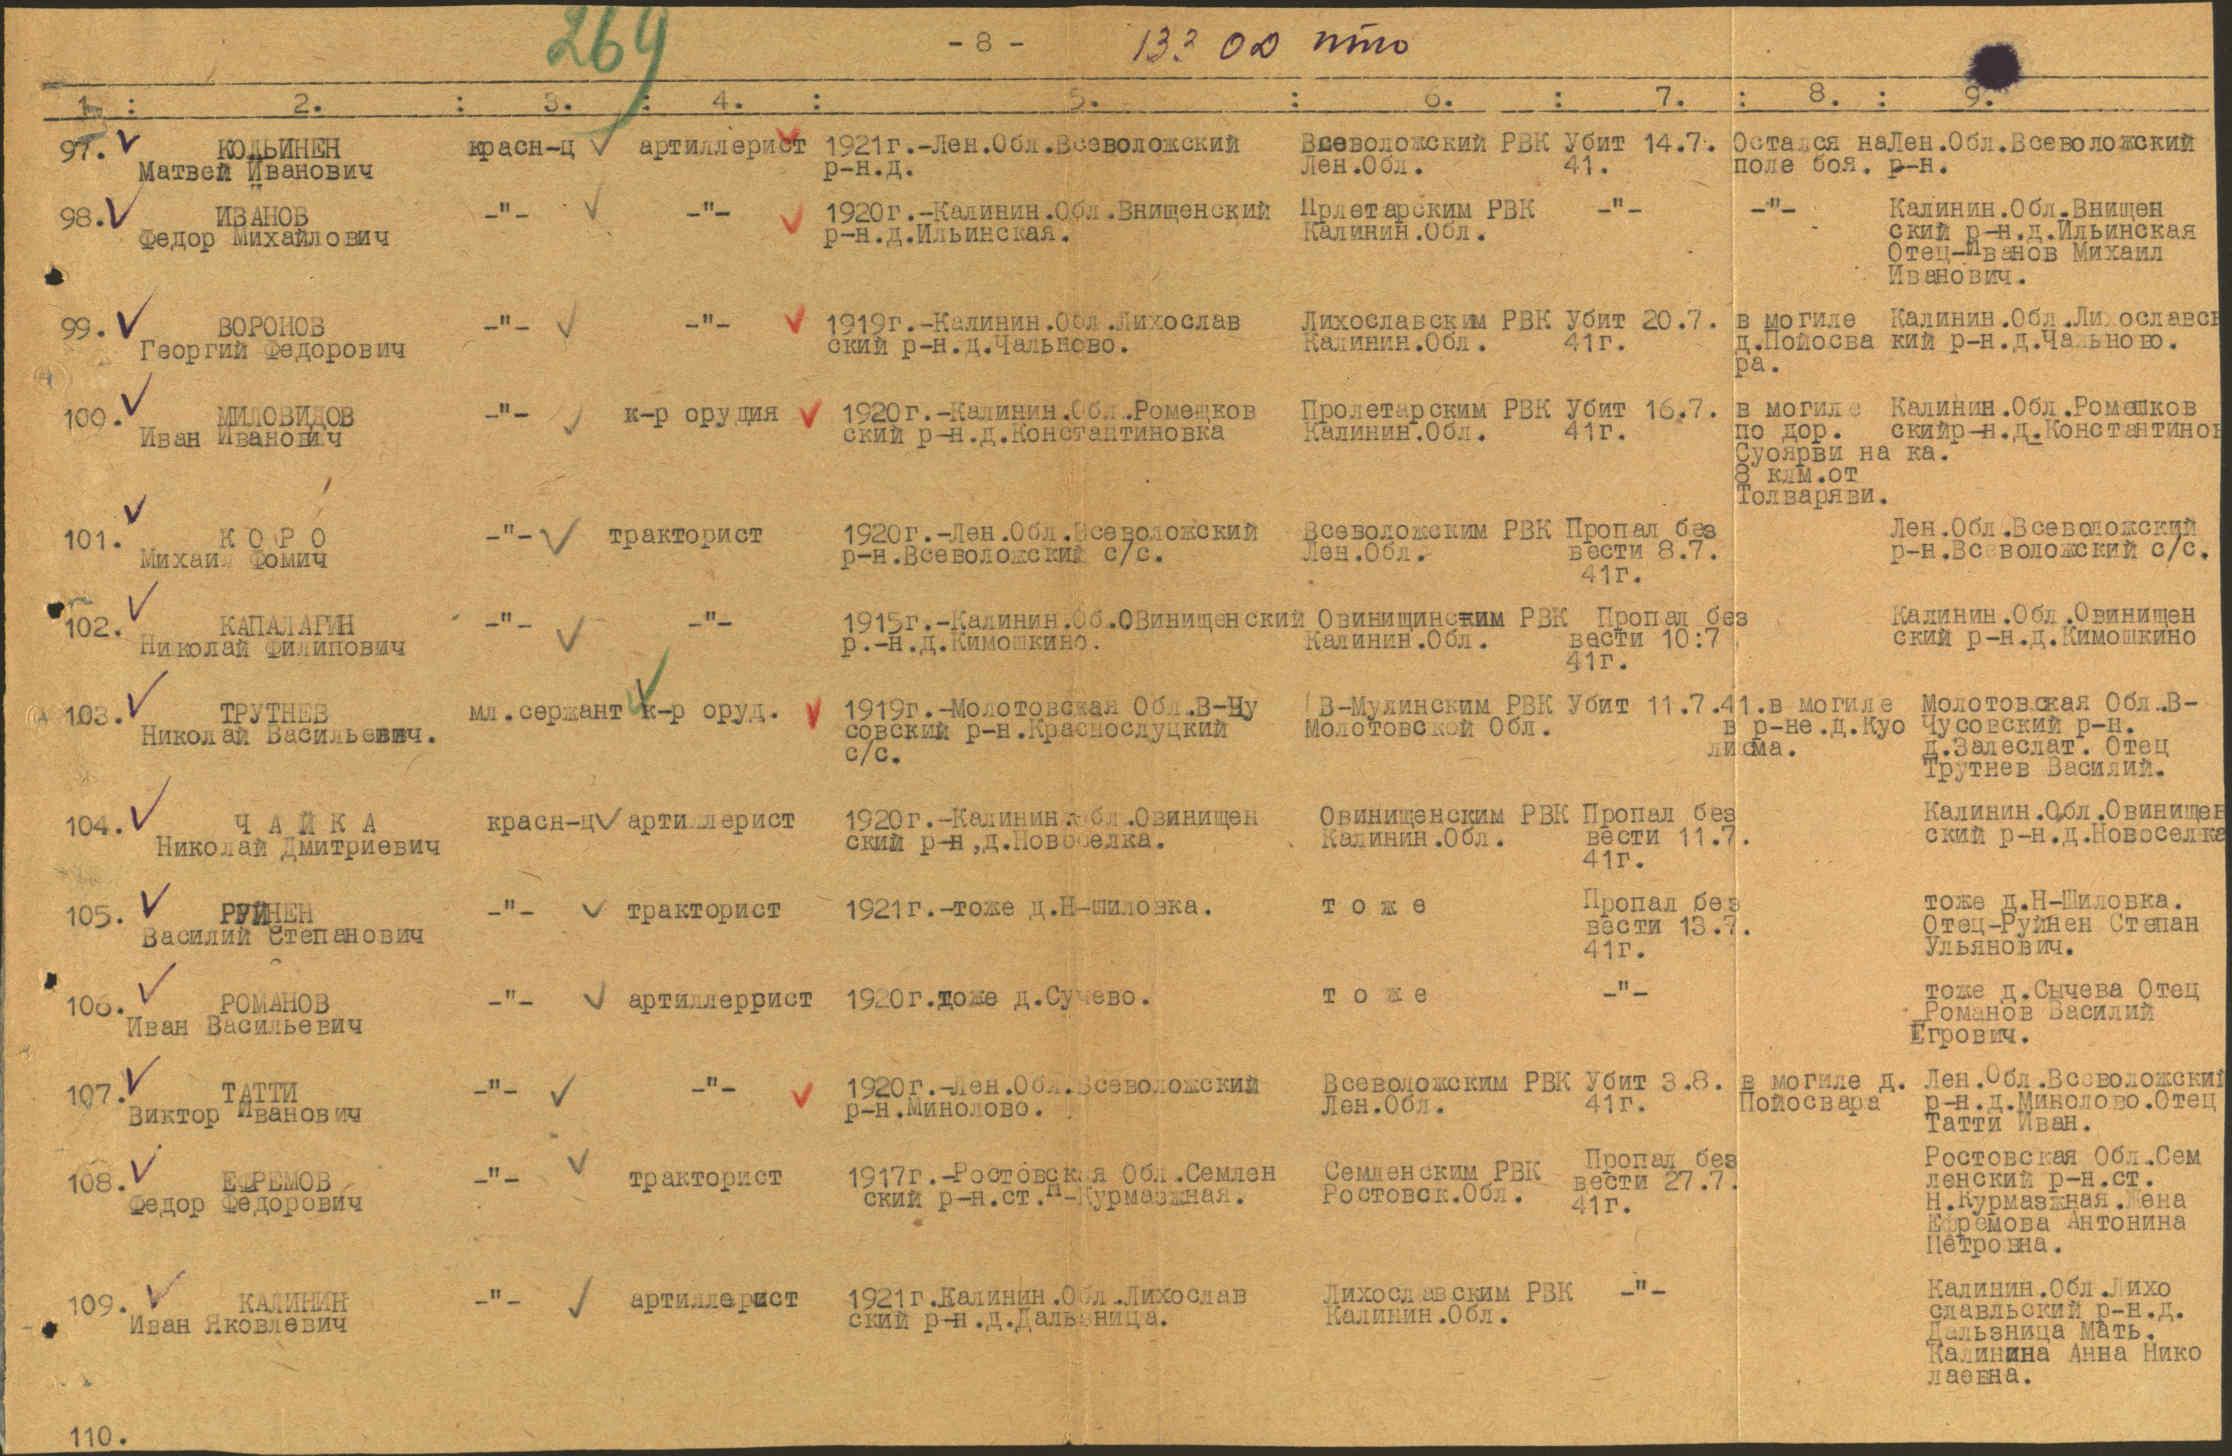 269
- 8 -
133 ОД пто
1. : 2. : 3. : 4. : 5. : 6. : 7. : 8. : 9.
97. КОЛЬИНЕН красн-ц артиллерист 1921г.-Лен.Обл.Всеволожский Всеволожский РВК Убит 14.7. Остался на Лен.Обл.Всеволожский
Матвей Иванович р-н.д. Лен.Обл. 41. поле боя. р-н.
98. ИВАНОВ -"- -"- 1920г.-Калинин.Обл.Внищенский Прлетарским РВК -"- -"- Калинин.Обл.Внищен
Федор Михайлович р-н.д.Ильинская. Калинин.Обл. ский р-н.д.Ильинская
Отец-Иванов Михаил
Иванович.
99. ВОРОНОВ -"- -"- 1919г.-Калинин.Обл.Лихослав Лихославским РВК Убит 20.7. в могиле Калинин.Обл.Лихославс
Георгий Федорович ский р-н.д.Чальново. Калинин.Обл. 41г. д.Пойосва кий р-н.д.Чальново.
ра.
100. МИЛОВИДОВ -"- к-р орудия 1920г.-Калинин.Обл.Ромешков Пролетарским РВК Убит 16.7. в могиле Калинин.Обл.Ромешков
Иван Иванович ский р-н.д.Константиновка Калинин.Обл. 41г. по дор. скийр-н.д.Константинов
Суоярви на ка.
8 клм.от
Толваряви.
101. К О Р О -"- тракторист 1920г.-Лен.Обл.Всеволожский Всеволожским РВК Пропал без Лен.Обл.Всеволожский
Михаил Фомич р-н.Всеволожский с/с. Лен.Обл. вести 8.7. р-н.Всеволожский с/с.
41г.
102. КАПАЛАГИН -"- -"- 1915г.-Калинин.Об.ОВинищенский Овинищинским РВК Пропал без Калинин.Обл.Овинищен
Николай Филипович р.-н.д.Кимошкино. Калинин.Обл. вести 10:7 ский р-н.д.Кимошкино
41г.
103. ТРУТНЕВ мл.сержант к-р оруд. 1919г.-Молотовская Обл.В-Чу В-Мулинским РВК Убит 11.7.41.в могиле Молотовская Обл.В-
Николай Васильевич. совский р-н.Краснослуцкий Молотовской Обл. в р-не.д.Куо Чусовский р-н.
с/с. лисма. д.Залеслат. Отец
Трутнев Василий.
104. Ч А Й К А красн-ц артиллерист 1920г.-Калинин.обл.Овинищен Овинищенским РВК Пропал без Калинин.Обл.Овинищен
Николай Дмитриевич ский р-н,д.Новоселка. Калинин.Обл. вести 11.7. ский р-н.д.Новоселка
41г.
105. РУЙНЕН -"- тракторист 1921г.-тоже д.Н-шиловка. т о ж е Пропал без тоже д.Н-Шиловка.
Василий Степанович вести 13.7. Отец-Руйнен Степан
41г. Ульянович.
106. РОМАНОВ -"- артиллеррист 1920г.тоже д.Сучево. т о ж е -"- тоже д.Сычева Отец
Иван Васильевич Романов Василий
Егрович.
107. ТАТТИ -"- -"- 1920г.-Лен.Обл.Всеволожский Всеволожским РВК Убит 3.8. в могиле д. Лен.Обл.Всеволожский
Виктор Иванович р-н.Минолово. Лен.Обл. 41г. Пойосвара р-н.д.Миколово.Отец
Татти Иван.
108. ЕФРЕМОВ -"- тракторист 1917г.-Ростовская Обл.Семлен Семленским РВК Пропал без Ростовская Обл.Сем
Федор Федорович ский р-н.ст.Н-Курмазжная. Ростовск.Обл. вести 27.7. ленский р-н.ст.
41г. Н.Курмазжная.Жена
Ефремова Антонина
Петровна.
109. КАЛИНИН -"- артиллерист 1921г.Калинин.Обл.Лихослав Лихославским РВК -"- Калинин.Обл.Лихо
Иван Яковлевич ский р-н.д.Дальзница. Калинин.Обл. славльский р-н.д.
Дальзница Мать.
Калинина Анна Нико
лаевна.
110.